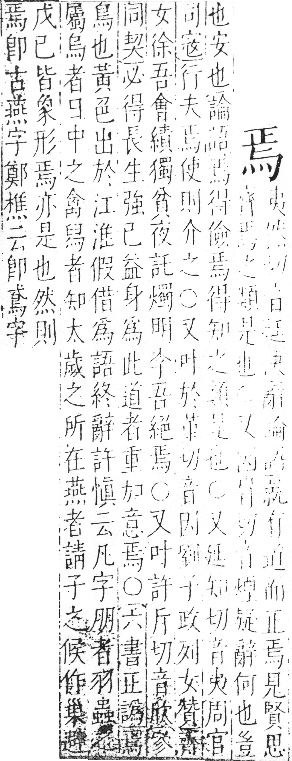 焉
夷然切音延決辭論語就有道而正焉見賢思
齊焉之類是也又因肩切音煙疑辭何也豈
也安也論語焉得儉焉得知之類是也○又延知切音夷周官
司寇行夫焉使則介之○又叶於革切音因劉子政列女贊齊
女徐吾會績獨貧夜託燭明今吾絕焉○又叶許斤切音欣參
同契必得長生強己益身為此道者重如意焉○六書正譌焉
鳥也黃色出於江淮假借為語終辭許慎云凡字朋者羽蟲之
屬烏者日中之禽舄者知太歲之所在燕者請子之候作巢避
戊己皆象形焉亦是也然則
焉即古燕字鄭樵云即鳶字